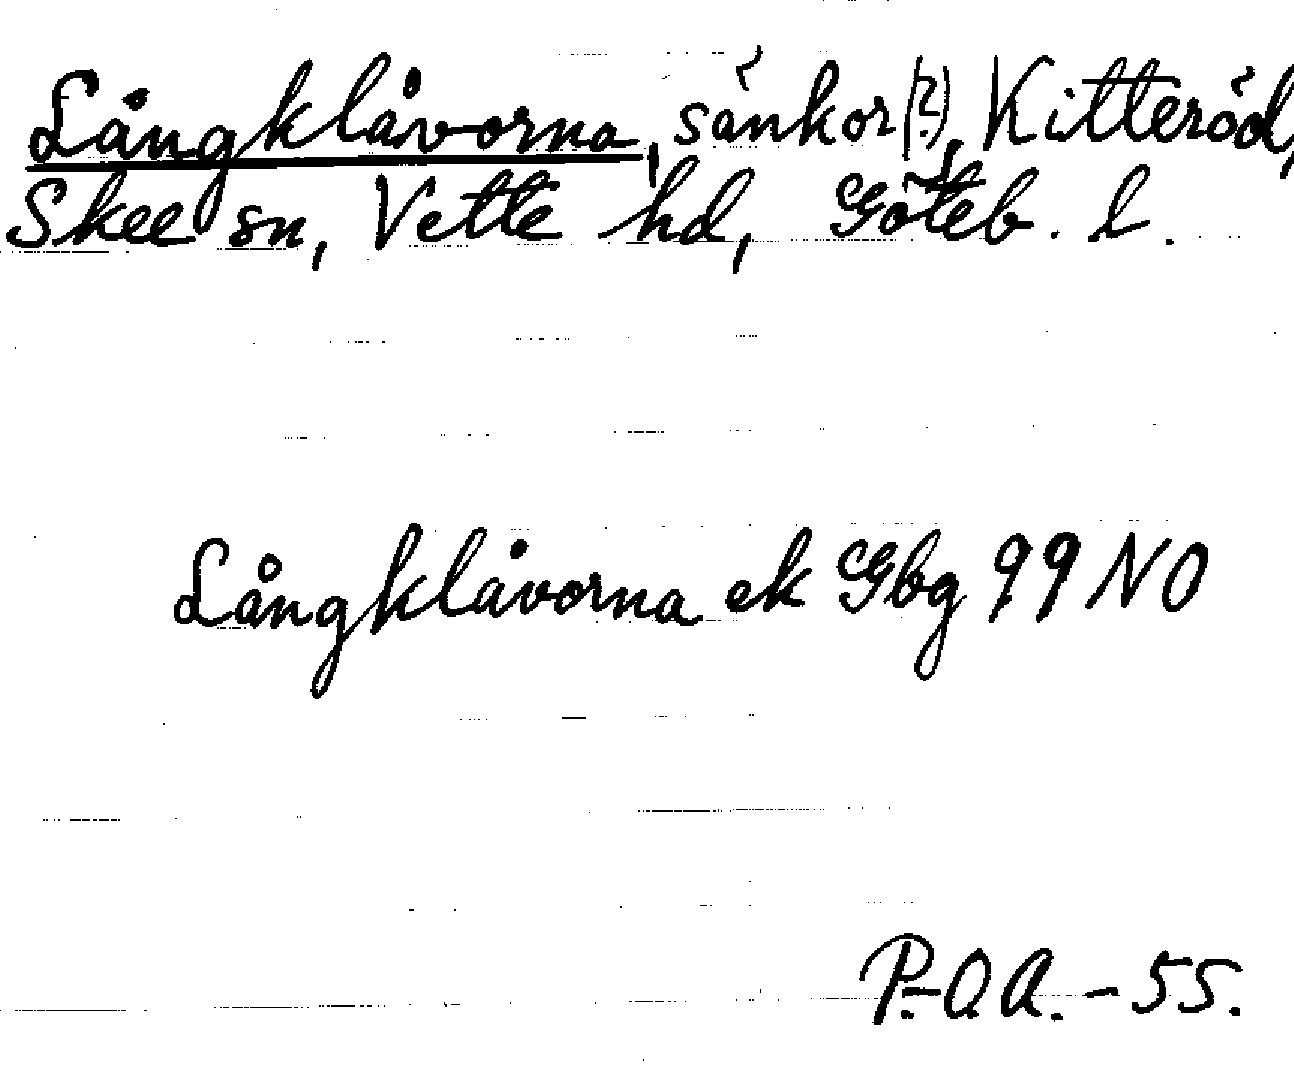 Långklåvorna, sänkor(?), Kitteröd,
Skee sn, Vette hd, Göteb. l.
Långklåvorna ek Gbg 99 NO
P.-O.A. -55.